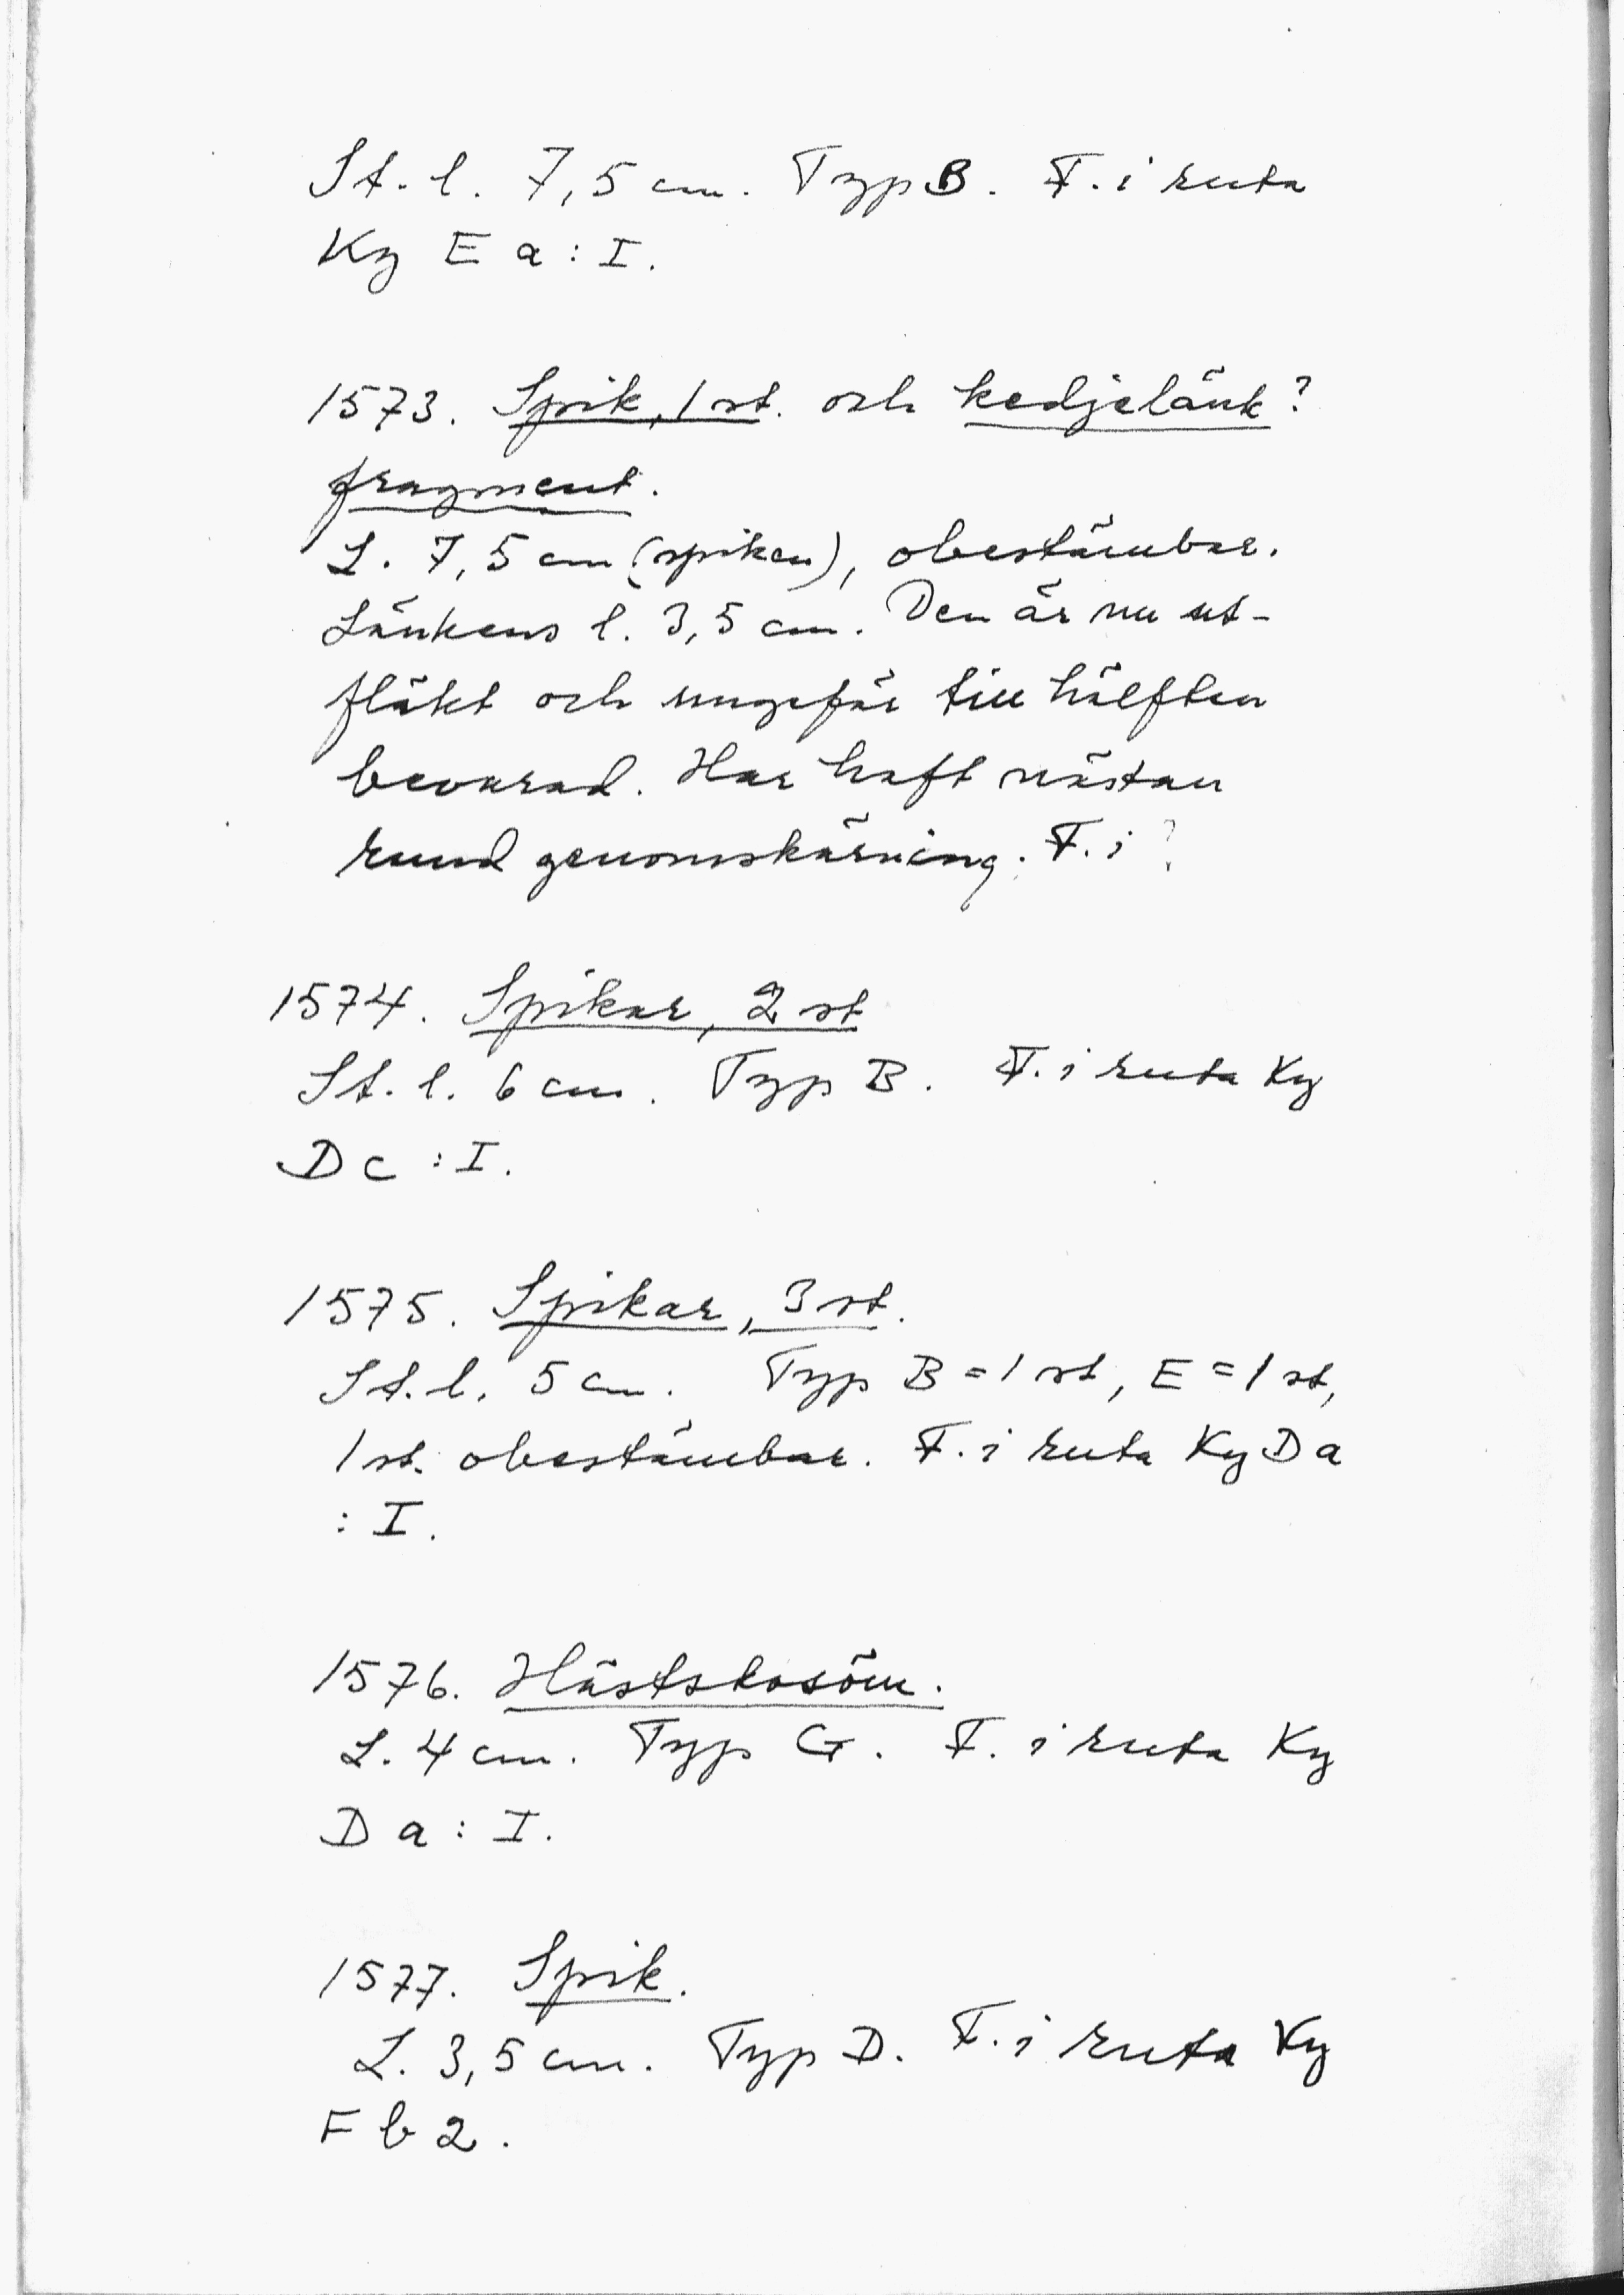 St. l. 7,5 cm. Typ B. F. i ruta
Ky E a : I.
1573. Spik, 1 st. och kedjelänk?
fragment.
L. 7,5 cm (spiken), obestämbar.
Länkens l. 3,5 cm. Den är nu ut-
fläkt och ungefär till hälften
bevarad. Har haft nästan
rund genomskärning. F. i ?
1574. Spikar, 2 st
St. l. 6 cm. Typ B. F. i ruta Ky
D c : I.
1575. Spikar, 3 st.
St. l. 5 cm. Typ B = 1 st, E = 1 st,
1 st. obestämbar. F. i ruta Ky D a
: I.
1576. Hästskosöm.
L. 4 cm. Typ G. F. i ruta Ky
D a : I.
1577. Spik.
L. 3,5 cm. Typ D. F. i ruta Ky
F b 2.